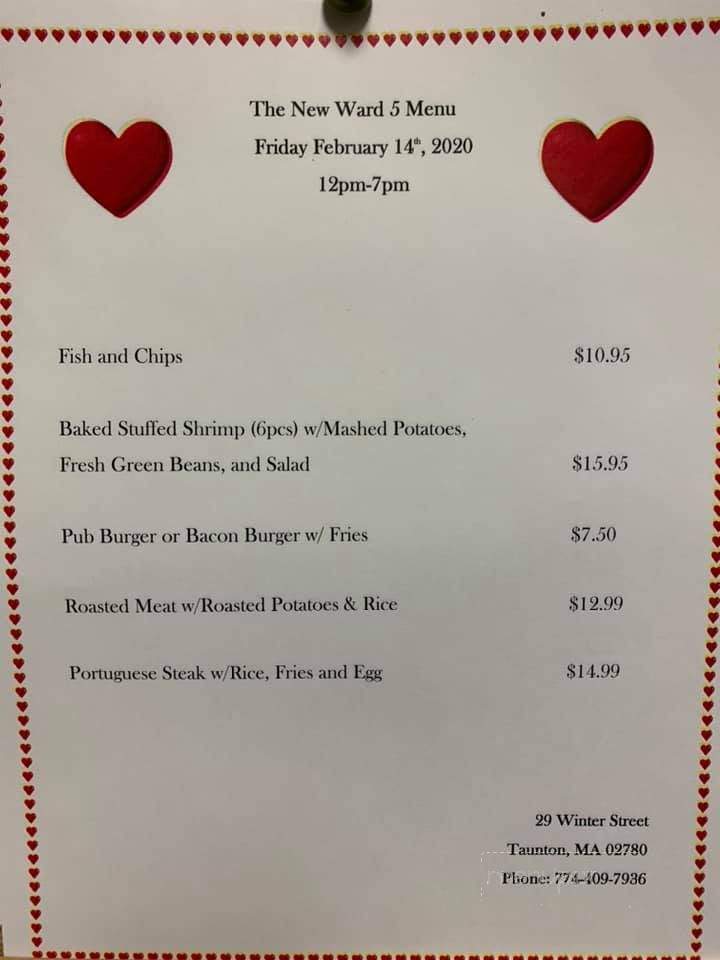 The New Ward 5 Menu
Friday February 14th, 2020
12pm-7pm
Fish and Chips $10.95
Baked Stuffed Shrimp (6pcs) w/Mashed Potatoes,
Fresh Green Beans, and Salad $15.95
Pub Burger or Bacon Burger w/ Fries $7.50
Roasted Meat w/Roasted Potatoes & Rice $12.99
Portuguese Steak w/Rice, Fries and Egg $14.99
29 Winter Street
Taunton, MA 02780
Phone: 774-409-7936